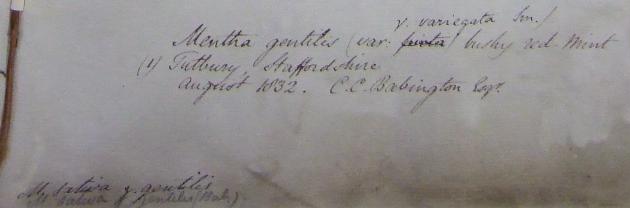 γ. variegata Sm.)
Mentha gentilis (var: bushy red Mint
(1) Tutbury, Staffordshire
August 1832. C.C. Babington Esqr.
M. sativa γ. gentilis
M. sativa γ gentilis (Bab.)